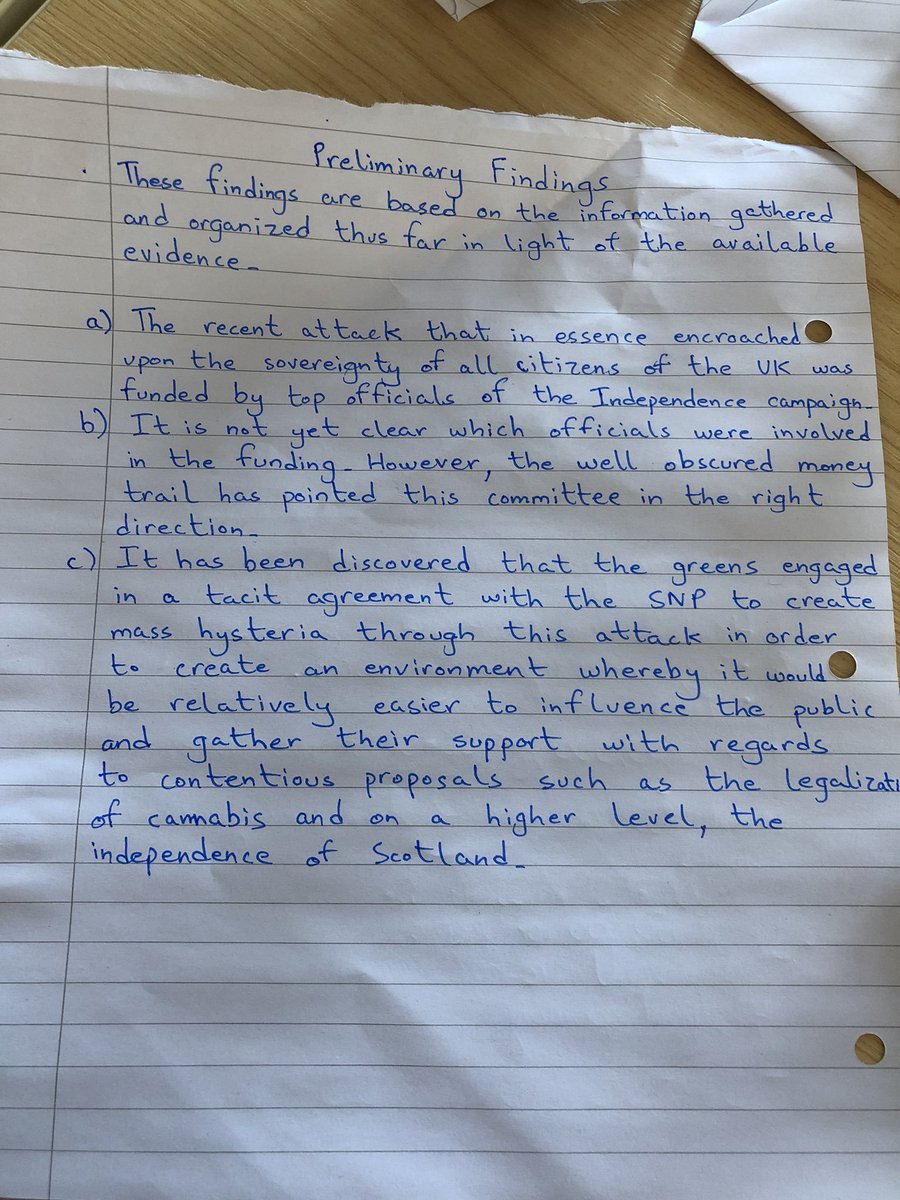 Preliminary Findings
These findings are based on the information gathered
and organized thus far in light of the available
evidence.
a) The recent attack that in essence encroached
upon the sovereignty of all citizens of the UK was
funded by top officials of the Independence campaign.
b) It is not yet clear which officials were involved
in the funding. However, the well obscured money
trail has pointed this committee in the right
direction.
c) It has been discovered that the greens engaged
in a tacit agreement with the SNP to create
mass hysteria through this attack in order
to create an environment whereby it would
be relatively easier to influence the public
and gather their support with regards
to contentious proposals such as the legalizati
of cannabis and on a higher level, the
independence of Scotland.